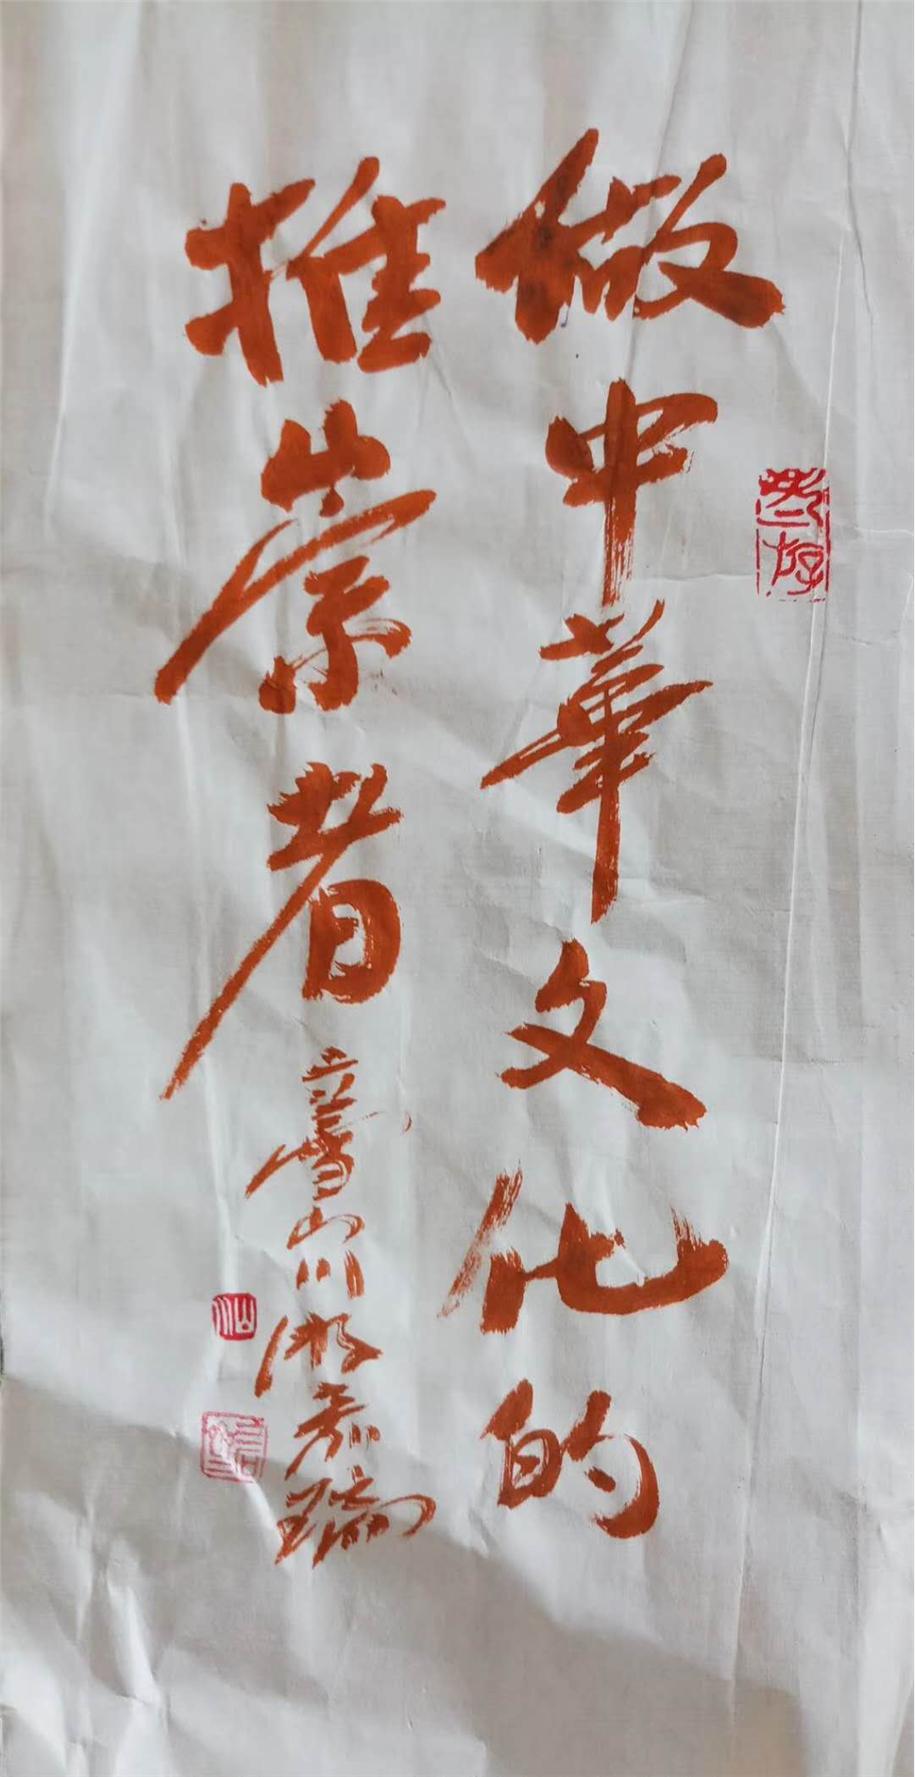 做中華文化的
推崇者
山川